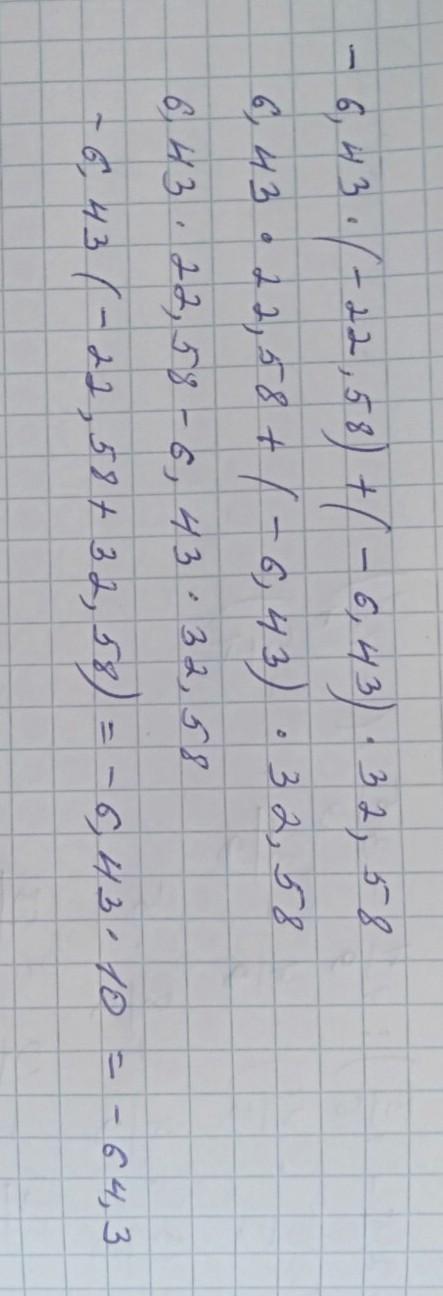 - 6,43 · (- 22,58) + (- 6,43) · 32,58
6,43 · 22,58 + (- 6,43) · 32,58
6,43 · 22,58 - 6,43 · 32,58
- 6,43 (- 22,58 + 32,58) = - 6,43 · 10 = - 64,3